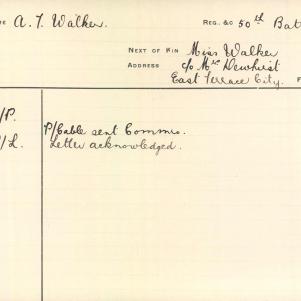 A. T. Walker. Reg. &c 50th Batt
Next of Kin Miss Walker
Address c/o Mrs Dewhirst
East Terrace City. F
/P.
P/Cable sent Commrs.
/L. Letter acknowledged.